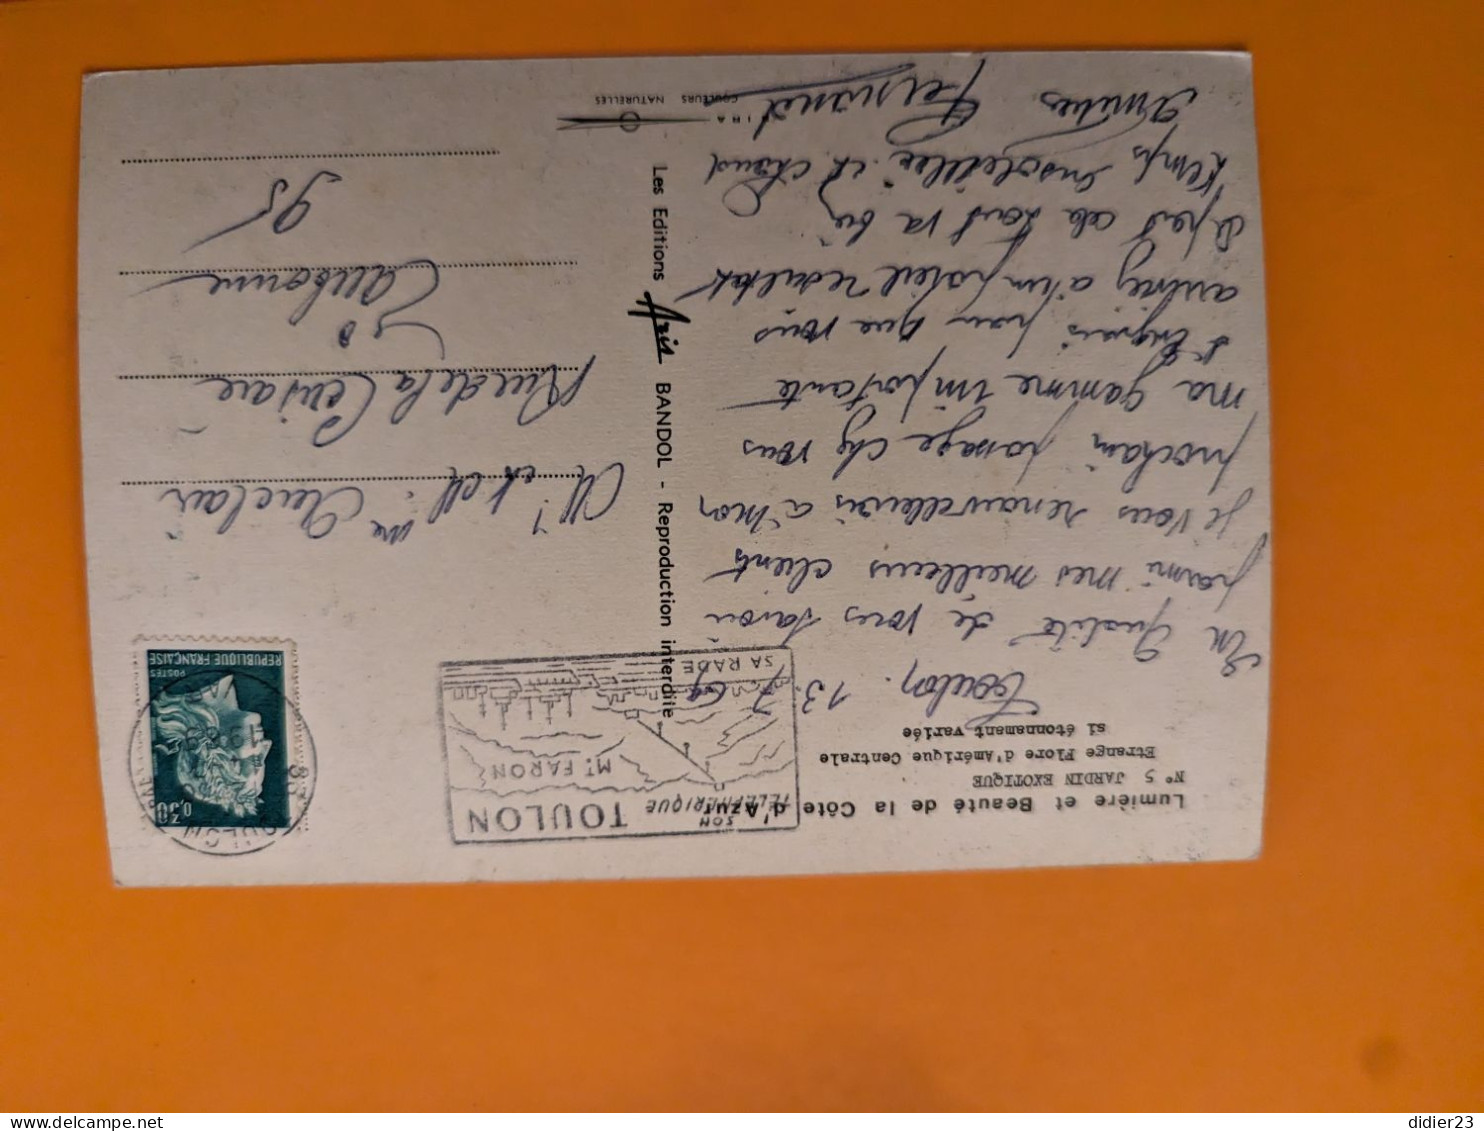 Lumière et Beauté de la Côte d'Azur
N° 5 JARDIN EXOTIQUE
Etrange Flore d'Amérique Centrale
si étonnamant variée
Toulon. 13.7.69
En Qualité de vous savoir
parmi mes meilleurs clients
je vous renouvellerai à mon
prochain passage chez vous
ma gamme importante
d'Engrais pour que vous
ayez un soleil resultat
à part cela tout va bien
Temps ensoleillée et chaud
Amitiés Fernand
SON
TÉLÉPHÉRIQUE
TOULON
MT FARON
SA RADE
REPUBLIQUE FRANÇAISE
POSTES
0,30
TOULON
Les Editions Aris BANDOL - Reproduction interdite
COULEURS NATURELLES
Mr et Mme Auclair
Rue de la Cerisaie
95
didier23